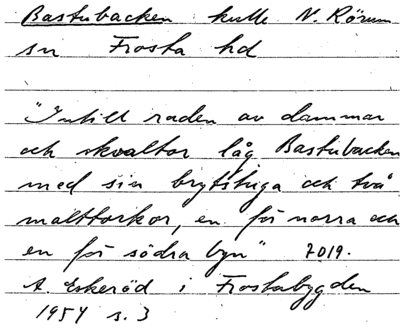 Bastubacken kulle N. Rörum
sn Frosta hd
"Intill raden av dammar
och skvaltor låg Bastubacken
med sin brytstuga och två
malttorkor, en för norra och
en för södra byn" 7019.
A. Eskeröd i Frostabygden
1954 s. 3